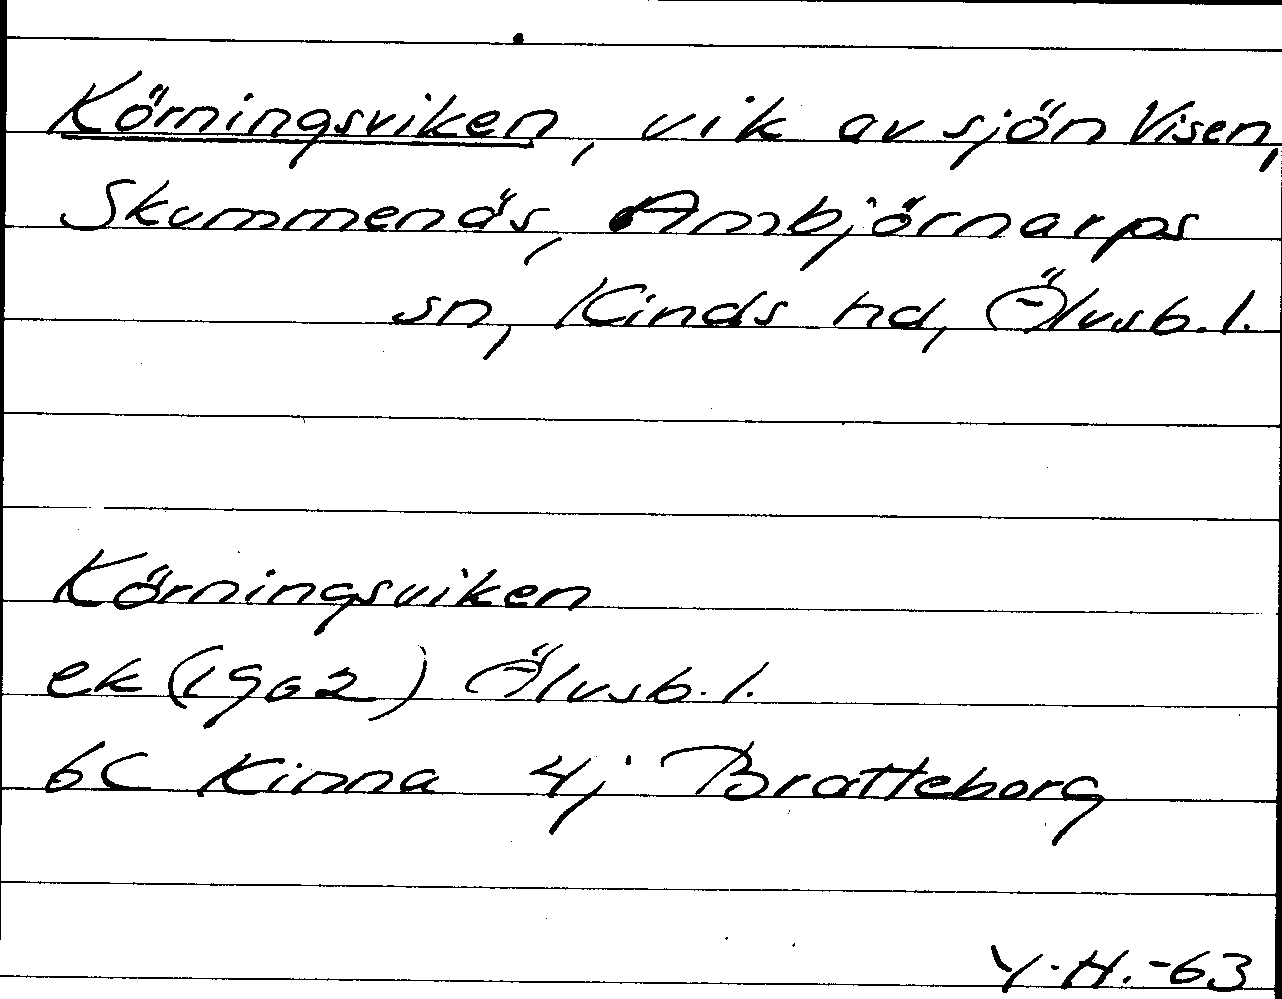 Körningsviken, vik av sjön Visen,
Skummenäs, Ambjörnarps
sn, Kinds hd, Älvsb. l.
Körningsviken
ek (1962) Älvsb. l.
6C Kinna 4j Bratteborg
Y. H. -63